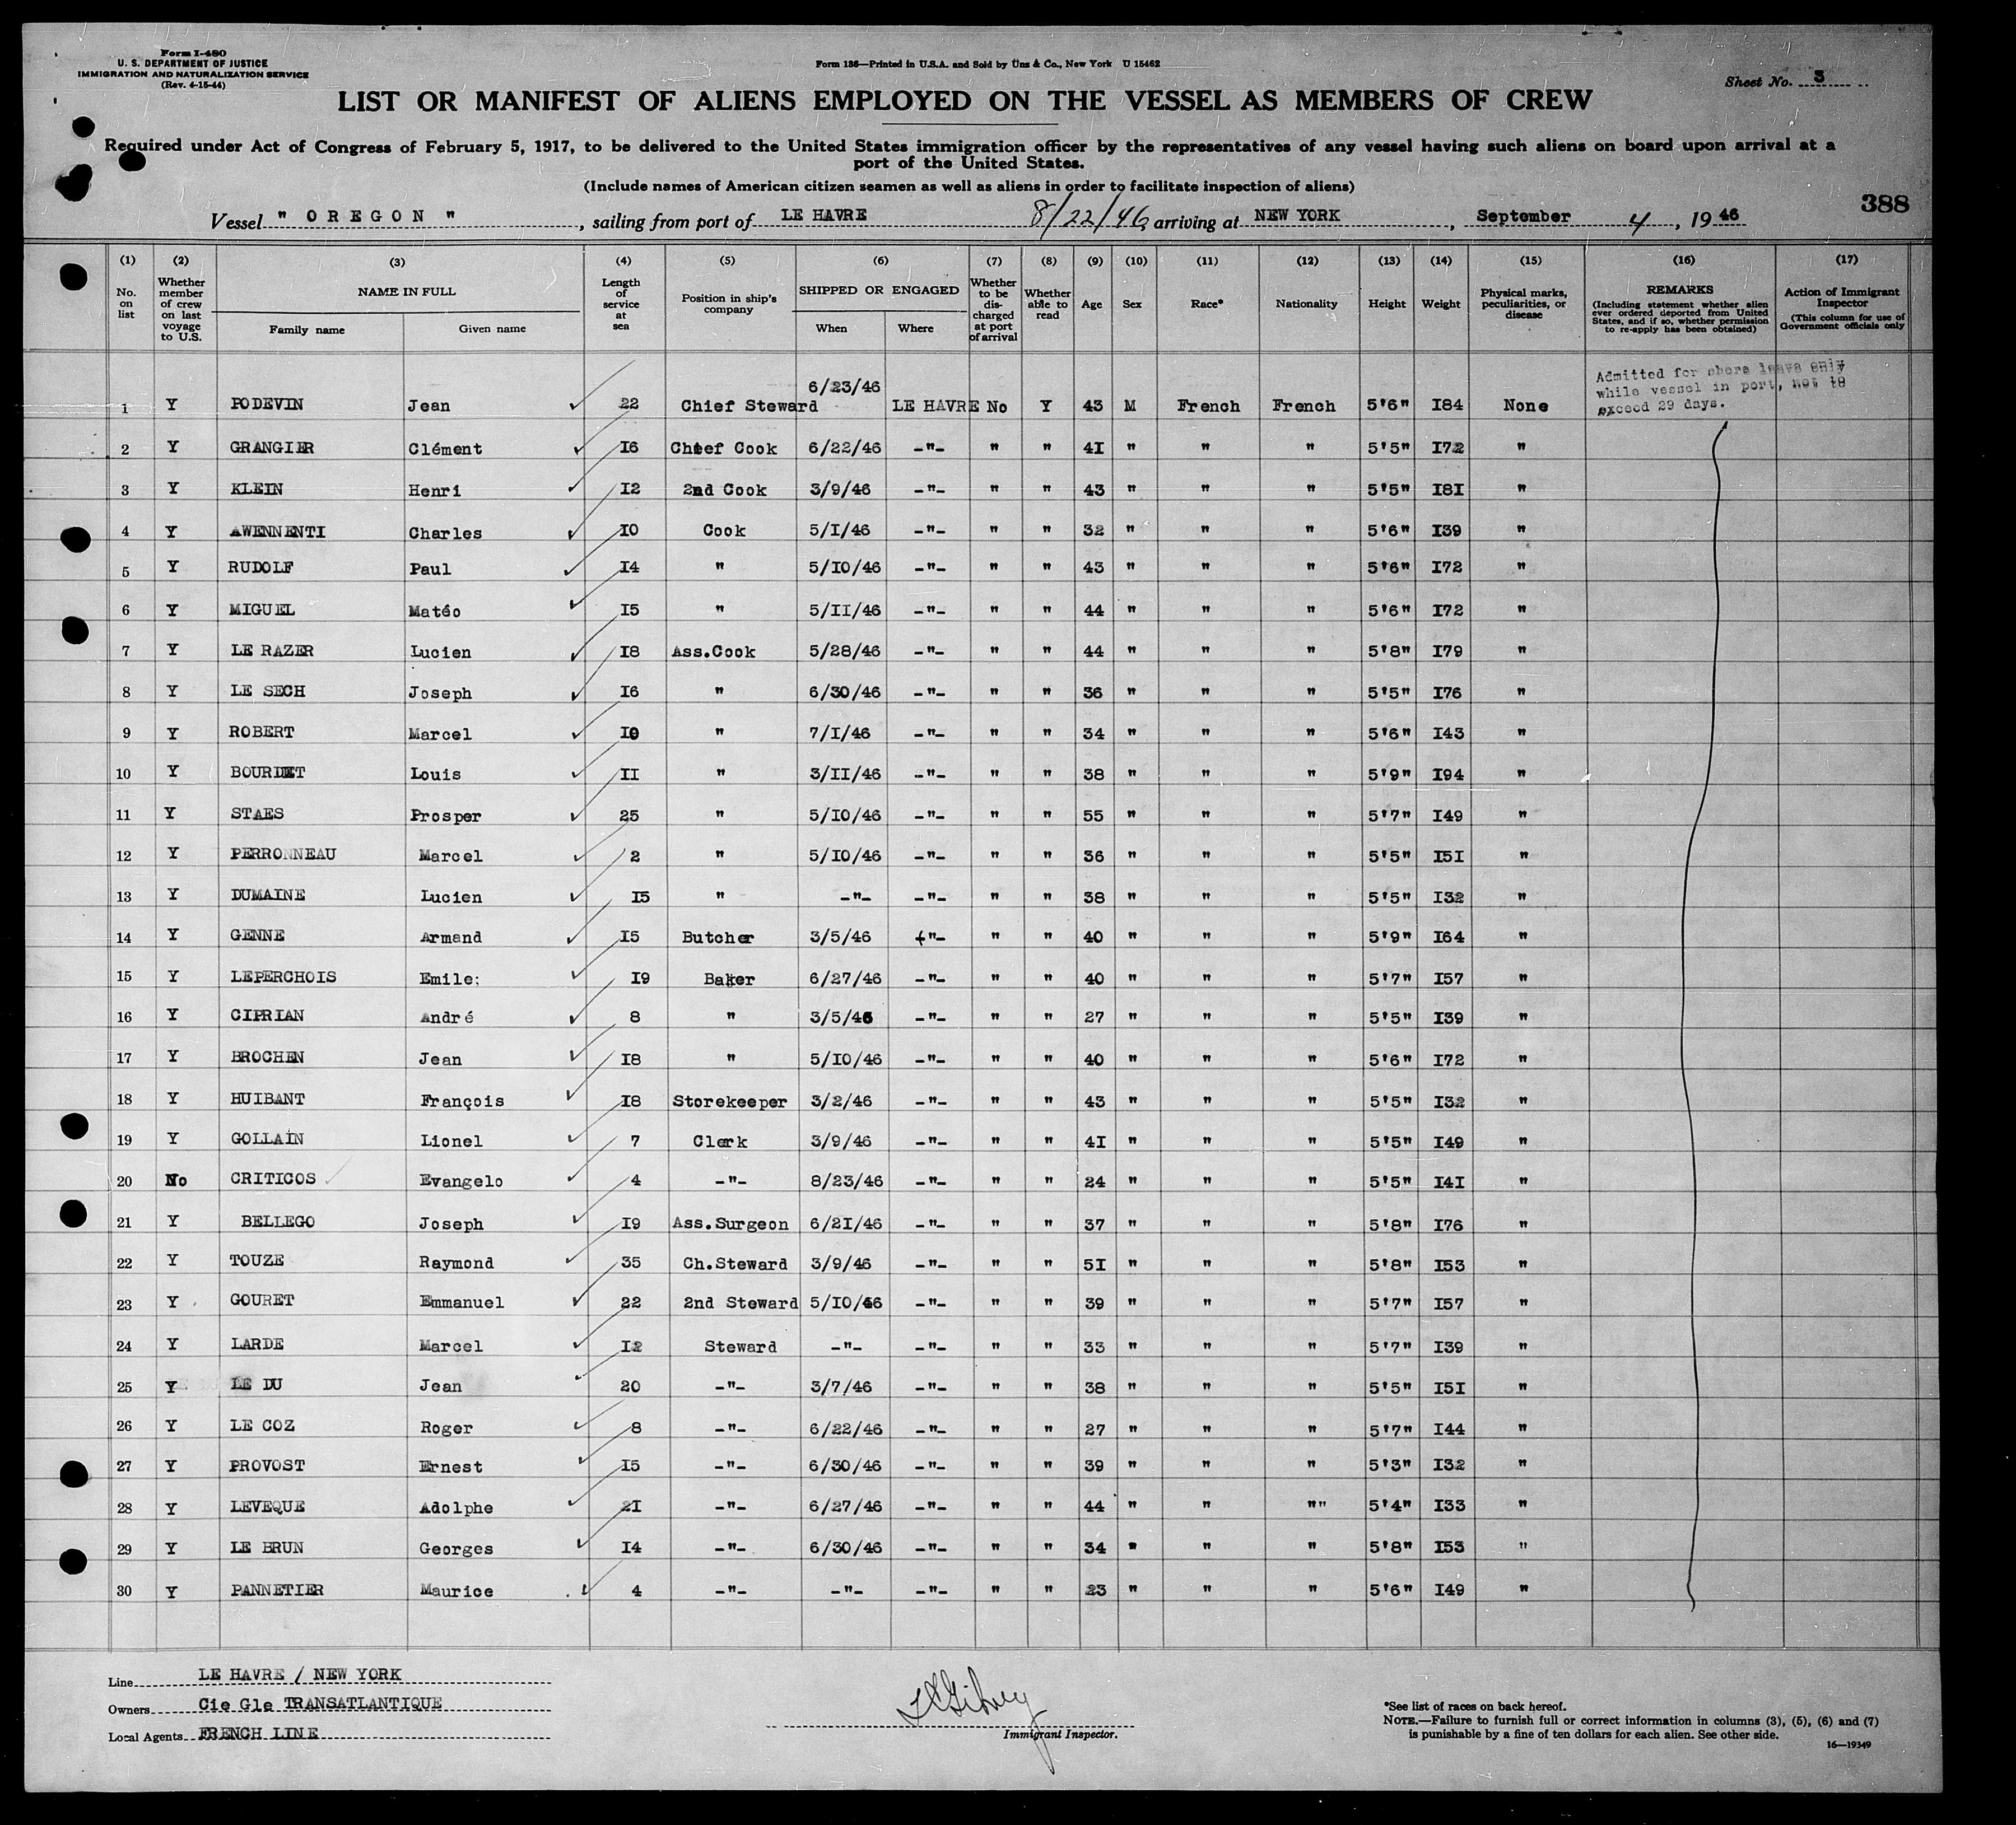 Form I-480
U. S. DEPARTMENT OF JUSTICE
IMMIGRATION AND NATURALIZATION SERVICE
(Rev. 4-15-44)
Form 186—Printed in U.S.A. and Sold by Unz & Co., New York U 15462
Sheet No. 3
LIST OR MANIFEST OF ALIENS EMPLOYED ON THE VESSEL AS MEMBERS OF CREW
Required under Act of Congress of February 5, 1917, to be delivered to the United States immigration officer by the representatives of any vessel having such aliens on board upon arrival at a
port of the United States.
(Include names of American citizen seamen as well as aliens in order to facilitate inspection of aliens)
388
Vessel " OREGON ", sailing from port of LE HAVRE 8/22/46, arriving at NEW YORK, September 4, 1946
(1) No. on list (2) Whether member of crew on last voyage to U.S. (3) NAME IN FULL Family name Given name (4) Length of service at sea (5) Position in ship's company (6) SHIPPED OR ENGAGED When Where (7) Whether to be discharged at port of arrival (8) Whether able to read (9) Age (10) Sex (11) Race* (12) Nationality (13) Height (14) Weight (15) Physical marks, peculiarities, or disease (16) REMARKS (Including statement whether alien ever ordered deported from United States, and if so, whether permission to re-apply has been obtained) (17) Action of Immigrant Inspector (This column for use of Government officials only
1 Y PODEVIN Jean 22 Chief Steward 6/23/46 LE HAVRE No Y 43 M French French 5'6" I84 None Admitted for shore leave only while vessel in port, not to exceed 29 days.
2 Y GRANGIER Clément I6 Chief Cook 6/22/46 -"- " " 4I " " " 5'5" I72 "
3 Y KLEIN Henri I2 2nd Cook 3/9/46 -"- " " 43 " " " 5'5" I8I "
4 Y AWENNENTI Charles I0 Cook 5/I/46 -"- " " 32 " " " 5'6" I39 "
5 Y RUDOLF Paul I4 " 5/I0/46 -"- " " 43 " " " 5'6" I72 "
6 Y MIGUEL Matéo I5 " 5/II/46 -"- " " 44 " " " 5'6" I72 "
7 Y LE RAZER Lucien I8 Ass.Cook 5/28/46 -"- " " 44 " " " 5'8" I79 "
8 Y LE SECH Joseph I6 " 6/30/46 -"- " " 36 " " " 5'5" I76 "
9 Y ROBERT Marcel I0 " 7/I/46 -"- " " 34 " " " 5'6" I43 "
10 Y BOURDET Louis II " 3/II/46 -"- " " 38 " " " 5'9" I94 "
11 Y STAES Prosper 25 " 5/I0/46 -"- " " 55 " " " 5'7" I49 "
12 Y PERRONNEAU Marcel 2 " 5/I0/46 -"- " " 36 " " " 5'5" I5I "
13 Y DUMAINE Lucien I5 " -"- -"- " " 38 " " " 5'5" I32 "
14 Y GENNE Armand I5 Butcher 3/5/46 -"- " " 40 " " " 5'9" I64 "
15 Y LEPERCHOIS Emile: I9 Baker 6/27/46 -"- " " 40 " " " 5'7" I57 "
16 Y CIPRIAN André 8 " 3/5/46 -"- " " 27 " " " 5'5" I39 "
17 Y BROCHEN Jean I8 " 5/I0/46 -"- " " 40 " " " 5'6" I72 "
18 Y HUIBANT François I8 Storekeeper 3/2/46 -"- " " 43 " " " 5'5" I32 "
19 Y GOLLAIN Lionel 7 Clerk 3/9/46 -"- " " 4I " " " 5'5" I49 "
20 No CRITICOS Evangelo 4 -"- 8/23/46 -"- " " 24 " " " 5'5" I4I "
21 Y BELLEGO Joseph I9 Ass.Surgeon 6/2I/46 -"- " " 37 " " " 5'8" I76 "
22 Y TOUZE Raymond 35 Ch.Steward 3/9/46 -"- " " 5I " " " 5'8" I53 "
23 Y GOURET Emmanuel 22 2nd Steward 5/I0/46 -"- " " 39 " " " 5'7" I57 "
24 Y LARDE Marcel I2 Steward -"- -"- " " 33 " " " 5'7" I39 "
25 Y LE DU Jean 20 -"- 3/7/46 -"- " " 38 " " " 5'5" I5I "
26 Y LE COZ Roger 8 -"- 6/22/46 -"- " " 27 " " " 5'7" I44 "
27 Y PROVOST Ernest I5 -"- 6/30/46 -"- " " 39 " " " 5'3" I32 "
28 Y LEVEQUE Adolphe 2I -"- 6/27/46 -"- " " 44 " " "" 5'4" I33 "
29 Y LE BRUN Georges I4 -"- 6/30/46 -"- " " 34 " " " 5'8" I53 "
30 Y PANNETIER Maurice 4 -"- -"- -"- " " 23 " " " 5'6" I49 "
Line LE HAVRE / NEW YORK
Owners Cie Gle TRANSATLANTIQUE
Local Agents FRENCH LINE
Immigrant Inspector.
*See list of races on back hereof.
NOTE.—Failure to furnish full or correct information in columns (3), (5), (6) and (7)
is punishable by a fine of ten dollars for each alien. See other side.
16—19349